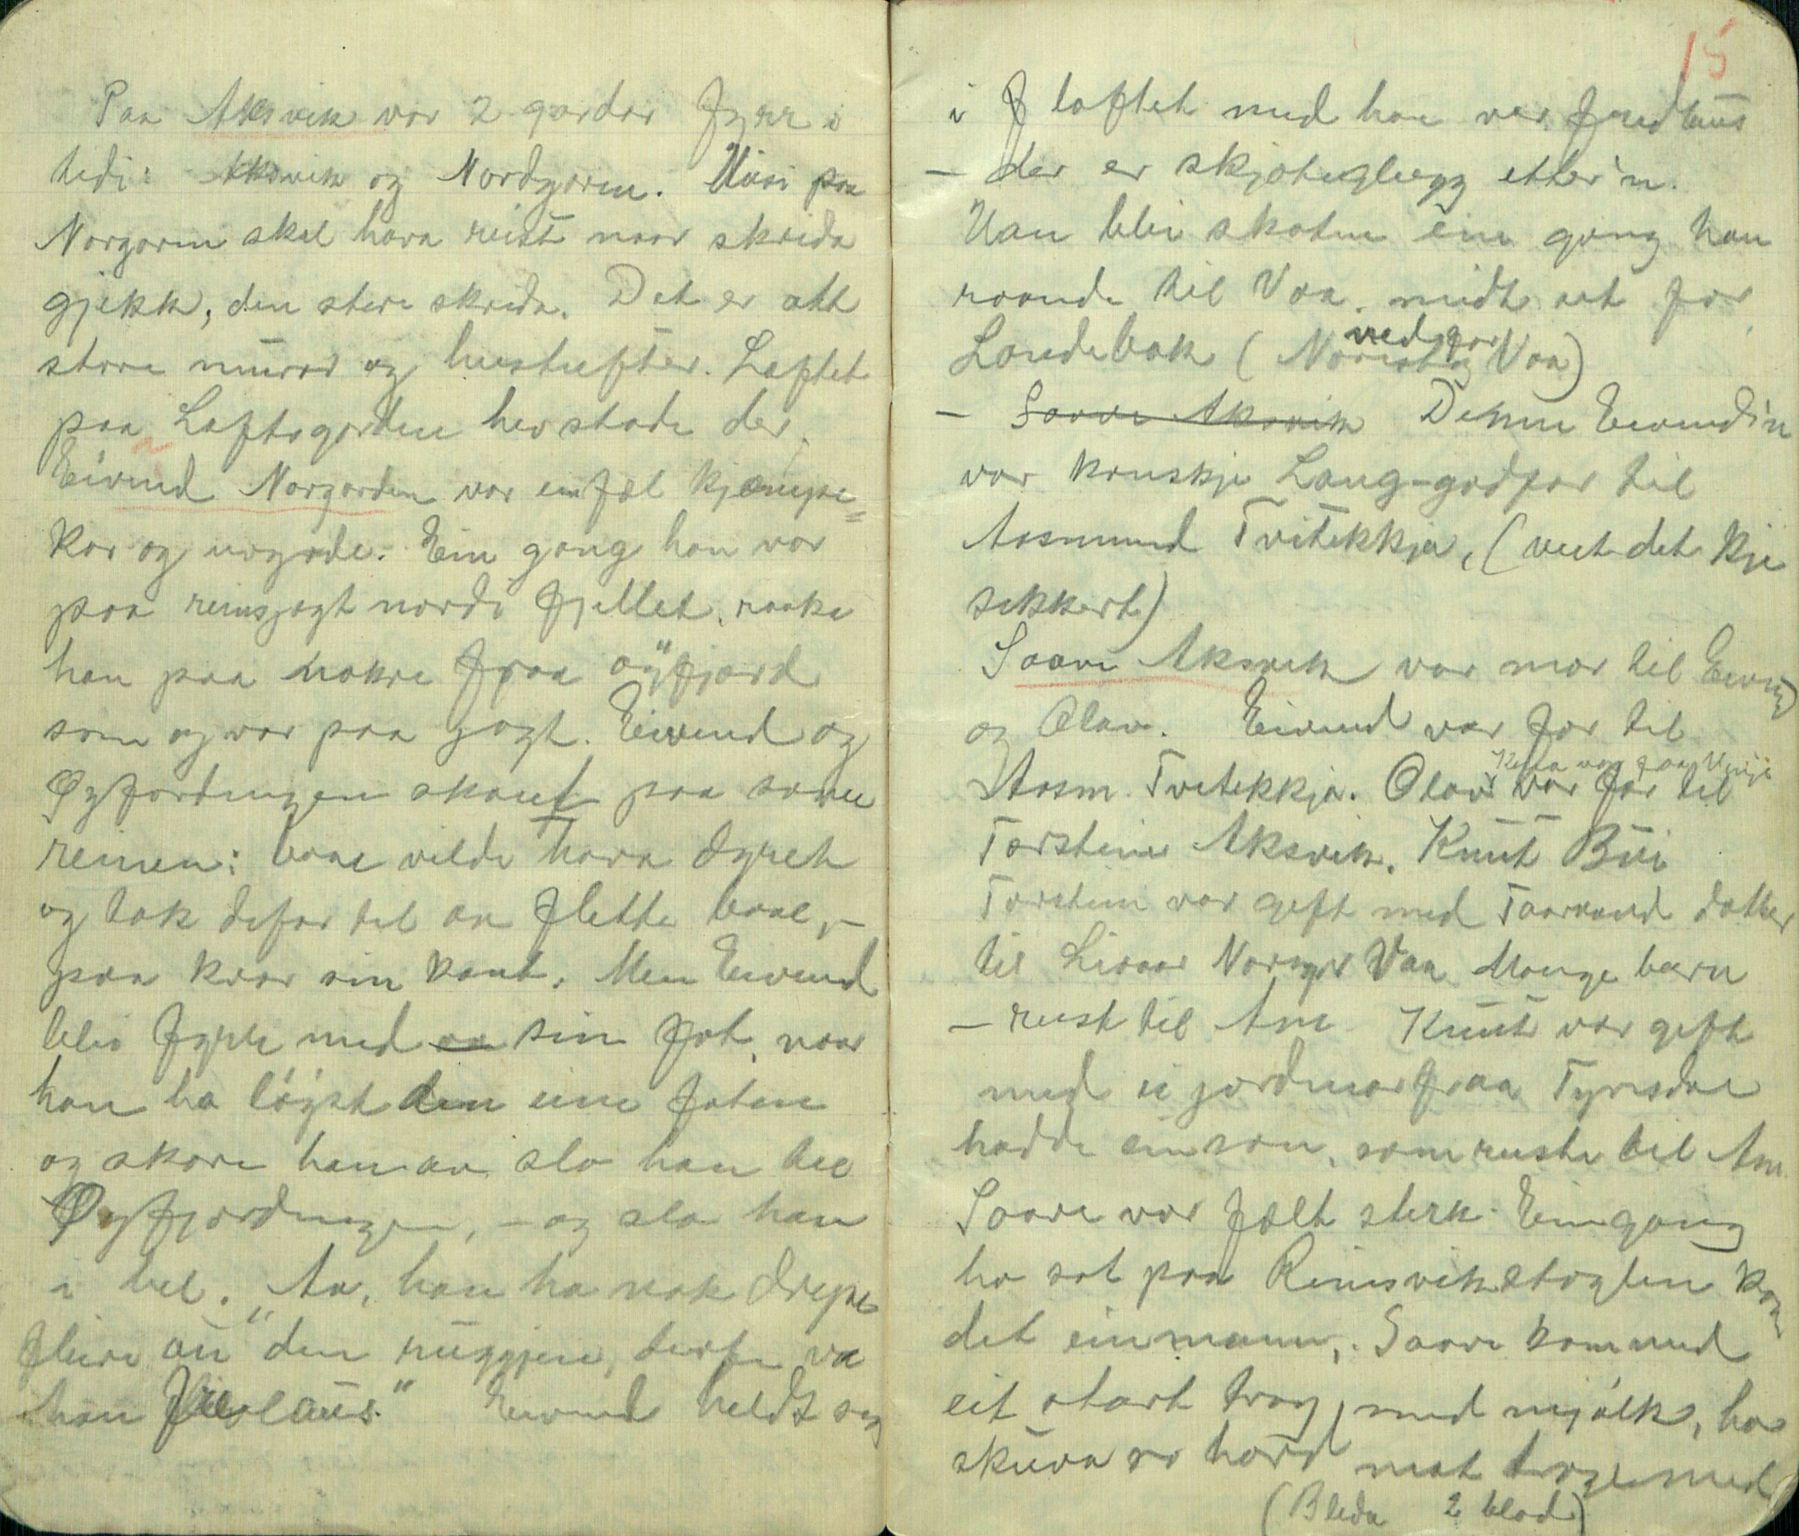 Paa Aksvik var 2 gardar fyrr i
tidi: Aksvik og Nordgaren. Husi paa
Norgaren skal hava reist naar skrida
gjekk, den store skrida. Det er att
store murar og hustufter. Loftet
paa Loftsgarden hev stade der.
Eivind Norgarden var ein fæl kjæmpe=
kar og uvyrde. Ein gong han var
paa reinsjagt nordi fjellet, raaka
han paa nokre fraa øyfjord
som og var paa jagt. Eivind og
Øyfjordingen skaut paa same
reinen: baae vilde hava dyret
og tok difor til aa flette baae, –
paa kvar sin kant. Men Eivind
blei fyrr med aa sin fot, naar
han ha løyst den eine foten
og skore han av slo han til
Øyfjordingen, – og slo han
i hel. "Aa, han ha nok drepe
fleire au den ruggjen, derfor va
han fredlaus." Eivind heldt seg
15
i loftet med han var fredlaus
– der er skjoteglugg etter'n.
Han blei skoten ein gong han
roande til Vaa, midt ut for
Londebak (Norigard Vaa)
ned
– Saave Aksvik Denne Eivind'n
var kanskje Lang-godfar til
Aasmund Tvitekkja, (veit det kje
sikkert)
Saave Aksvik var mor til Eivind
og Olav. Eivind var far til
Kona var fraa
Aasm. Tvitekkja. Olav var far til
Torstein Aksvik. Knut Bui
Torstein var gift med Taarand dotter
til Livaar Vaa Mange barn
– reist til Am. Knut var gift
med ei jordmor fraa Tyrisdal
hadde ein son, som reiste til Am.
Saave var fælt sterk. Ein gong
ho sat paa Reinsvikstoylen kom
det ein mann, Saave kom med
eit stort trog med mjølk, ho
skuva so hard mot troge med
(Bleda 2 blad)